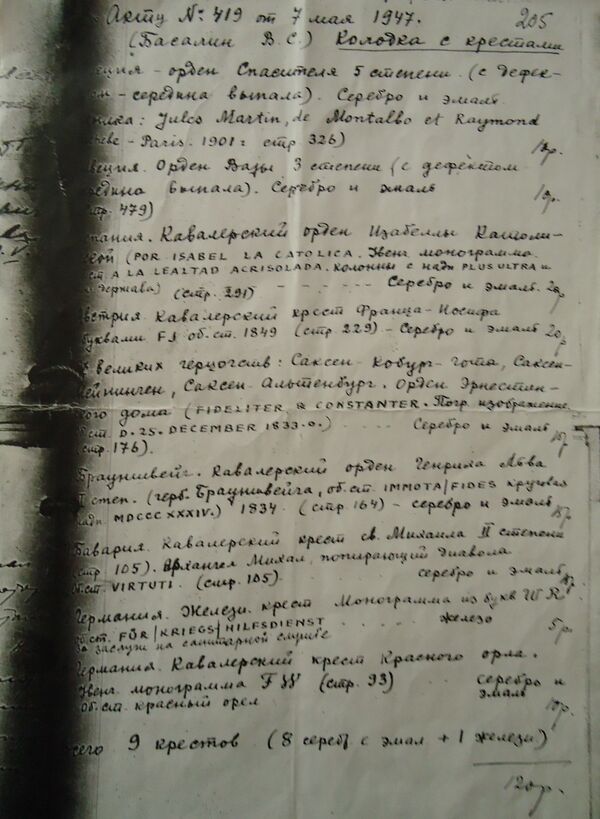 Акту № 419 от 7 мая 1947. 205
(Басалин В.С.) Колодка с крестами
еция - орден Спасителя 5 степени (с дефек-
ом - середина выпала). Серебро и эмаль
Jules Martin, de Montalbo et Raymond
- Paris. 1901 г стр 326) 10р.
веция. Орден Вазы 3 степени (с дефектом
редина выпала). Серебро и эмаль 10р.
тр. 479)
пания. Кавалерский орден Изабеллы Католи-
кой (POR ISABEL LA CATOLICA. Увенч монограмма.
ст. A LA LEALTAD ACRISOLADA. Колонны с надп PLUS ULTRA и
держава) (стр. 291) - - - - - Серебро и эмаль. 20р
встрия Кавалерский крест Франца-Иосифа
буквами FJ об.ст. 1849 (стр 229) - Серебро и эмаль 20р.
х великих герцогств: Саксен-Кобург-Гота, Саксен-
ейнинген, Саксен-Альтенбург. Орден Эрнестин-
кого дома (FIDELITER & CONSTANTER. Погр. изображение
об.ст. D. 25. DECEMBER 1833.) ... Серебро и эмаль
стр. 176).
Брауншвейг. Кавалерский орден Генриха Льва
степ. (герб. Брауншвейга, об.ст. IMMOTA/FIDES круговая
надп. MDCCCXXXIV.) 1834 (стр. 164) - серебро и эмаль 15р.
Бавария. Кавалерский крест св. Михаила II степени
(стр 105). Архангел Михаил, попирающий диавола
об.ст. VIRTUTI. (стр. 105). серебро и эмаль
Германия. Железн. крест Монограмма из букв W R
об.ст. FÜR/KRIEGS/HILFSDIENST ... железо 5р.
за заслуги на санитарной службе
Германия. Кавалерский крест Красного орла.
Увенч. монограмма (стр. 93) серебро и
об.ст. красный орел эмаль 10р.
сего 9 крестов (8 серебр с эмал + 1 железн)
120р.